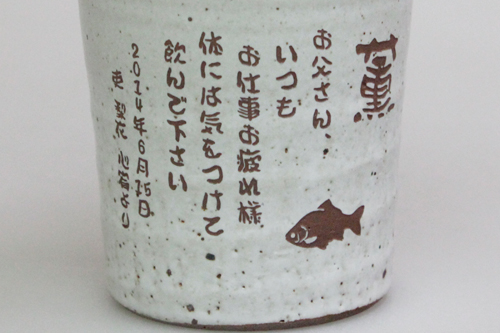 薫
お父さん、
いつも
お仕事お疲れ様
体には気をつけて
飲んで下さい
2014年6月15日
梨花 より